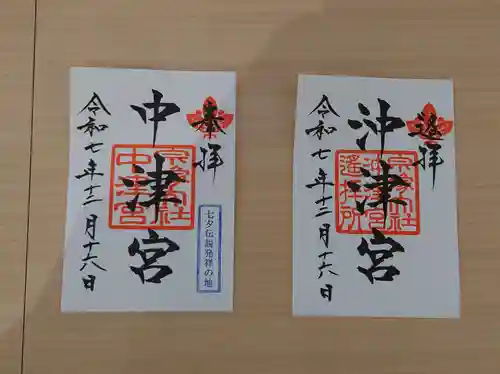 奉拝
中津宮
宗像大社
中津宮
令和七年十二月十六日
七夕伝説発祥の地
遥拝
沖津宮
宗像大社
沖津宮
遥拝所
令和七年十二月十六日